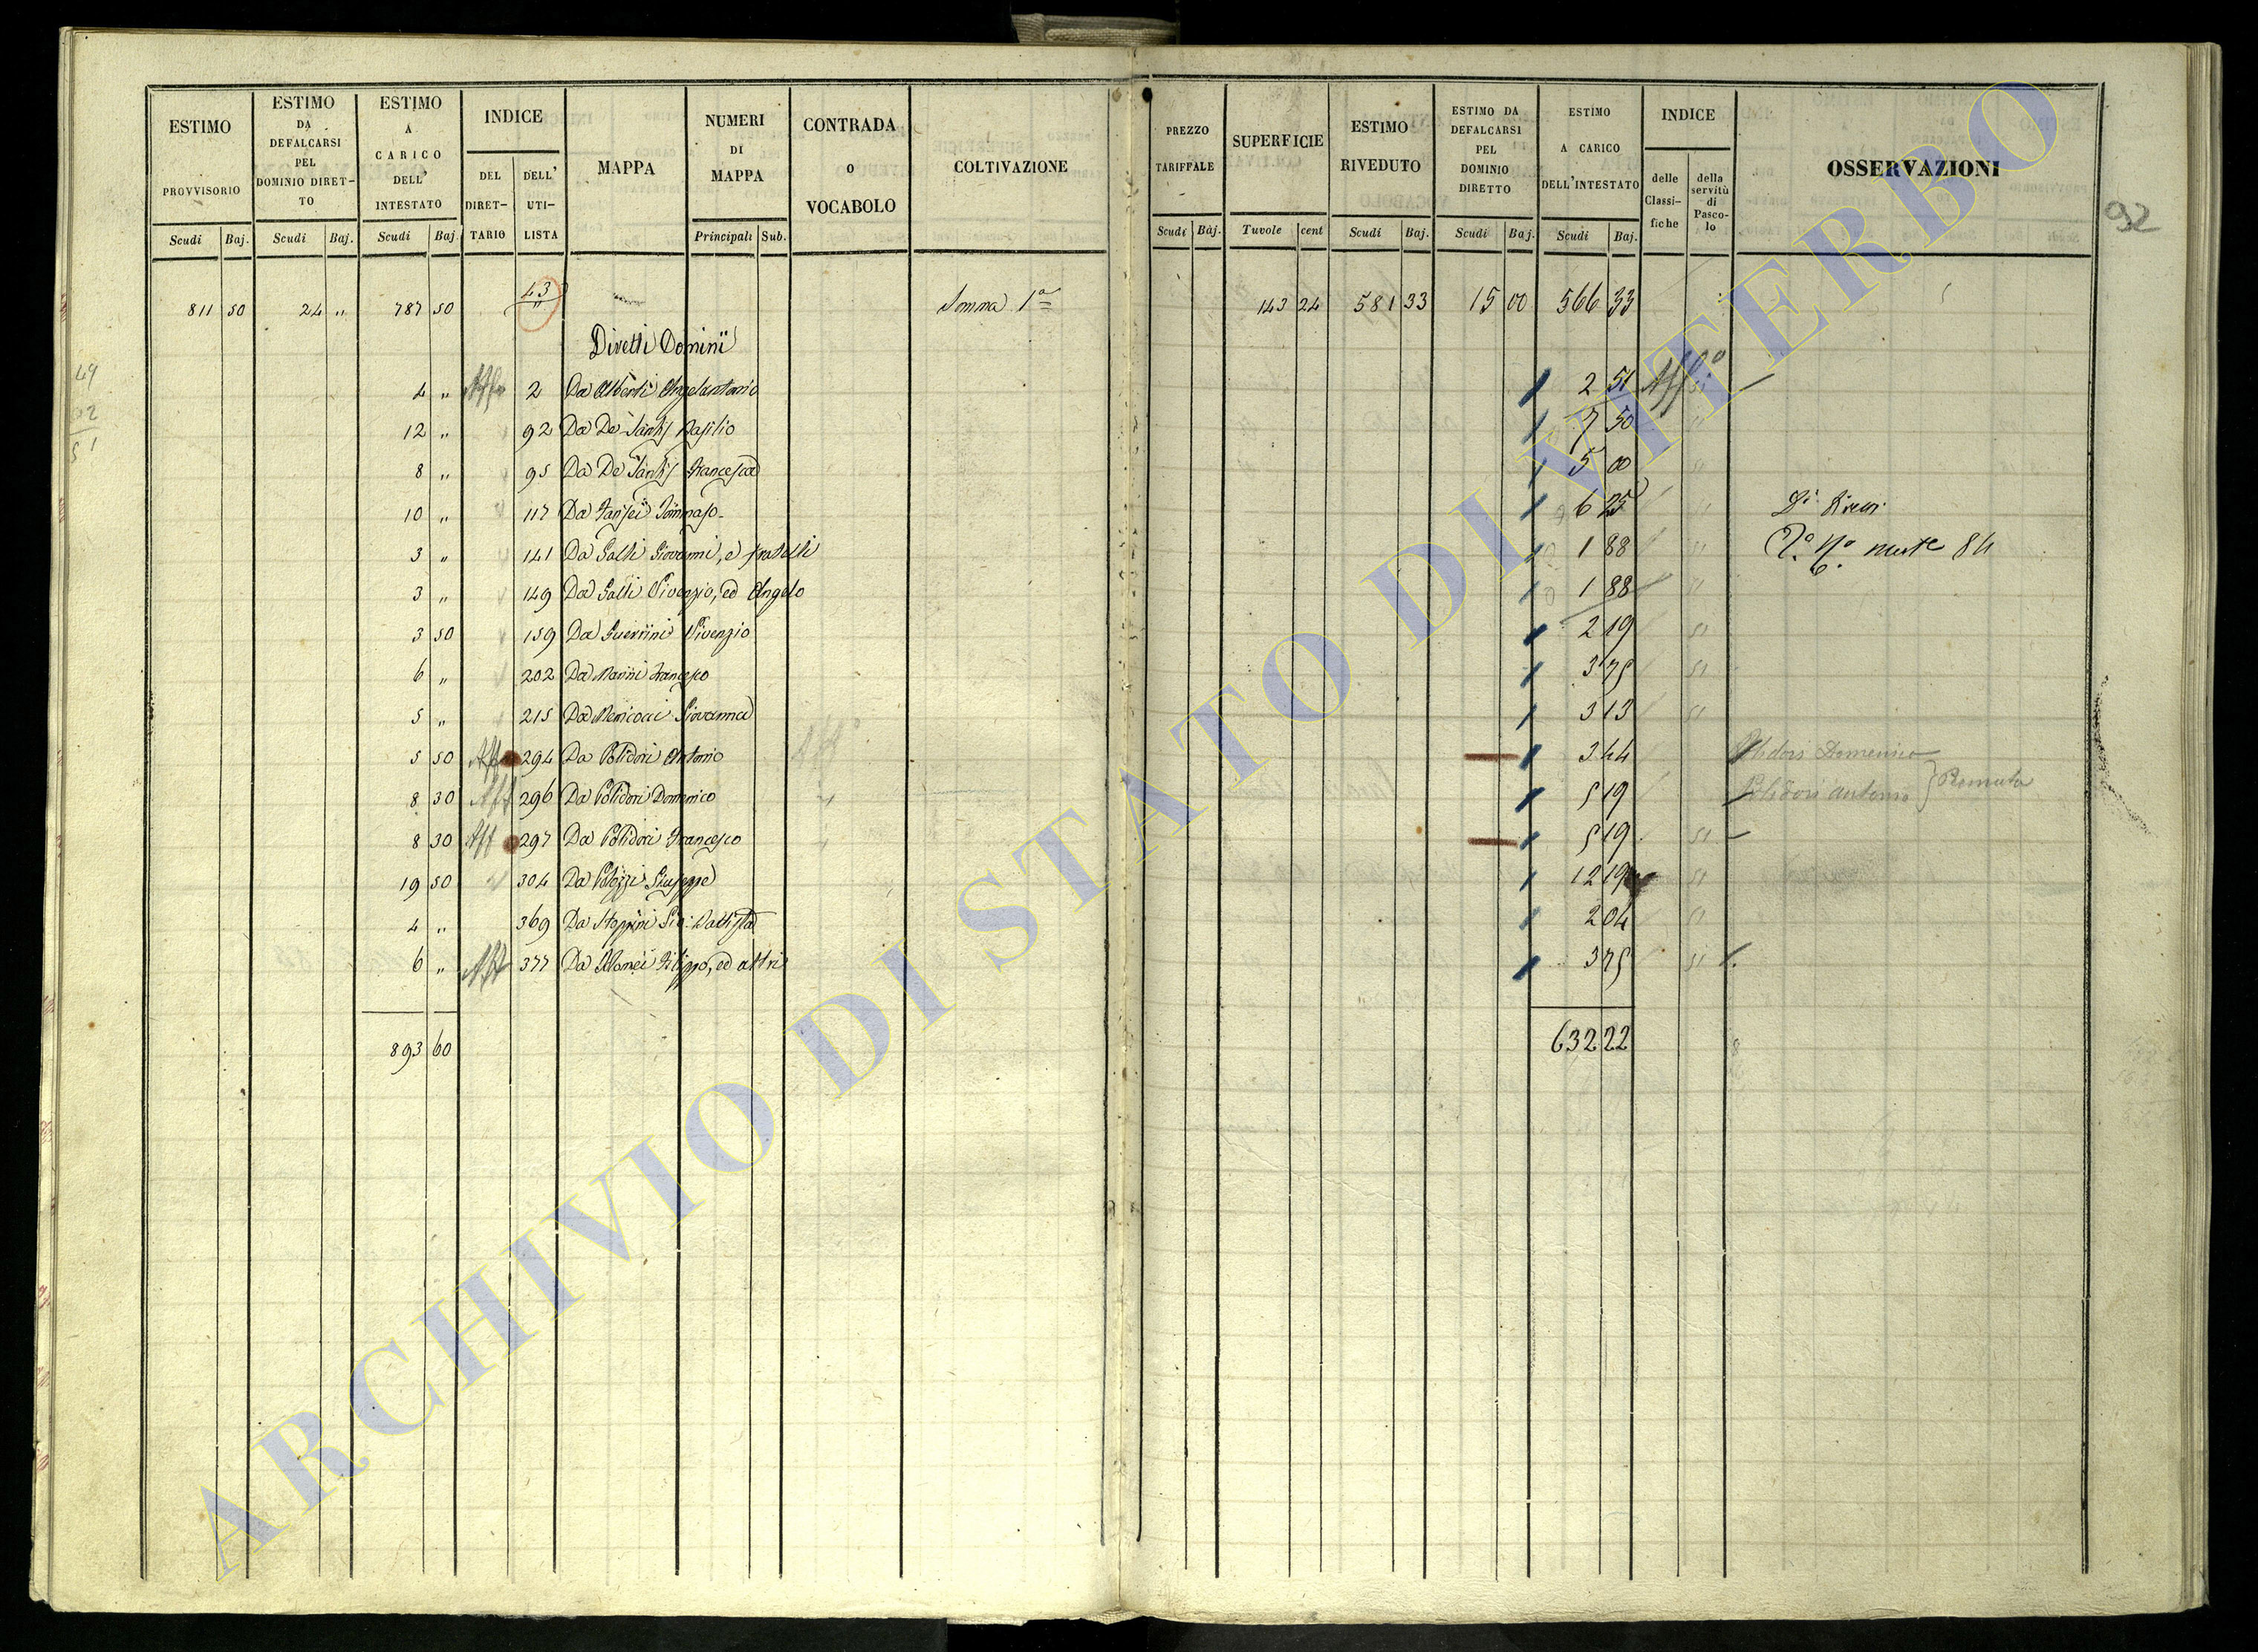 ESTIMO PROVVISORIO Scudi Baj.
ESTIMO DA DEFALCARSI PEL DOMINIO DIRET- TO Scudi Baj.
ESTIMO A CARICO DELL' INTESTATO Scudi Baj.
INDICE DEL DIRET- TARIO DELL' UTI- LISTA
MAPPA
NUMERI DI MAPPA Principali Sub.
CONTRADA o VOCABOLO
COLTIVAZIONE
PREZZO TARIFFALE Scudi Baj.
SUPERFICIE Tavole cent
ESTIMO RIVEDUTO Scudi Baj.
ESTIMO DA DEFALCARSI PEL DOMINIO DIRETTO Scudi Baj.
ESTIMO A CARICO DELL'INTESTATO Scudi Baj.
INDICE delle Classi- fiche della servitù di Pasco- lo
OSSERVAZIONI
92
811 50 24 „ 787 50 43 „ Somma 1ª 143 24 581 33 15 00 566 33
Diretti Dominii
4 „ Aff 2 Da Alberti Angelantonio 2 51 Affº
12 „ 92 Da De Santis Basilio 7 50
8 „ 95 Da De Santis Francesca 5 00
10 „ 117 Da Fansei Tommaso 6 25
3 „ 141 Da Galli Giovanni, e fratelli 1 88 84
3 „ 149 Da Galli Vivenzio, ed Angelo 1 88
3 50 159 Da Guerrini Vivenzio 2 19
6 „ 202 Da Marini Francesco 3 75
5 „ 215 Da Menicocci Giovanna 3 13
5 50 Aff 294 Da Polidori Antonio 3 44 Polidori Domenico
8 30 Aff 296 Da Polidori Domenico 5 19 Polidori Antonio
8 30 Aff 297 Da Polidori Francesco 5 19
19 50 304 Da Polozzi Giuseppe 12 19
4 „ 369 Da Stoppini Gio: Battista 2 04
6 „ Aff 377 Da Filippo, ed altri 3 75
893 60 632 22
ARCHIVIO DI STATO DI VITERBO